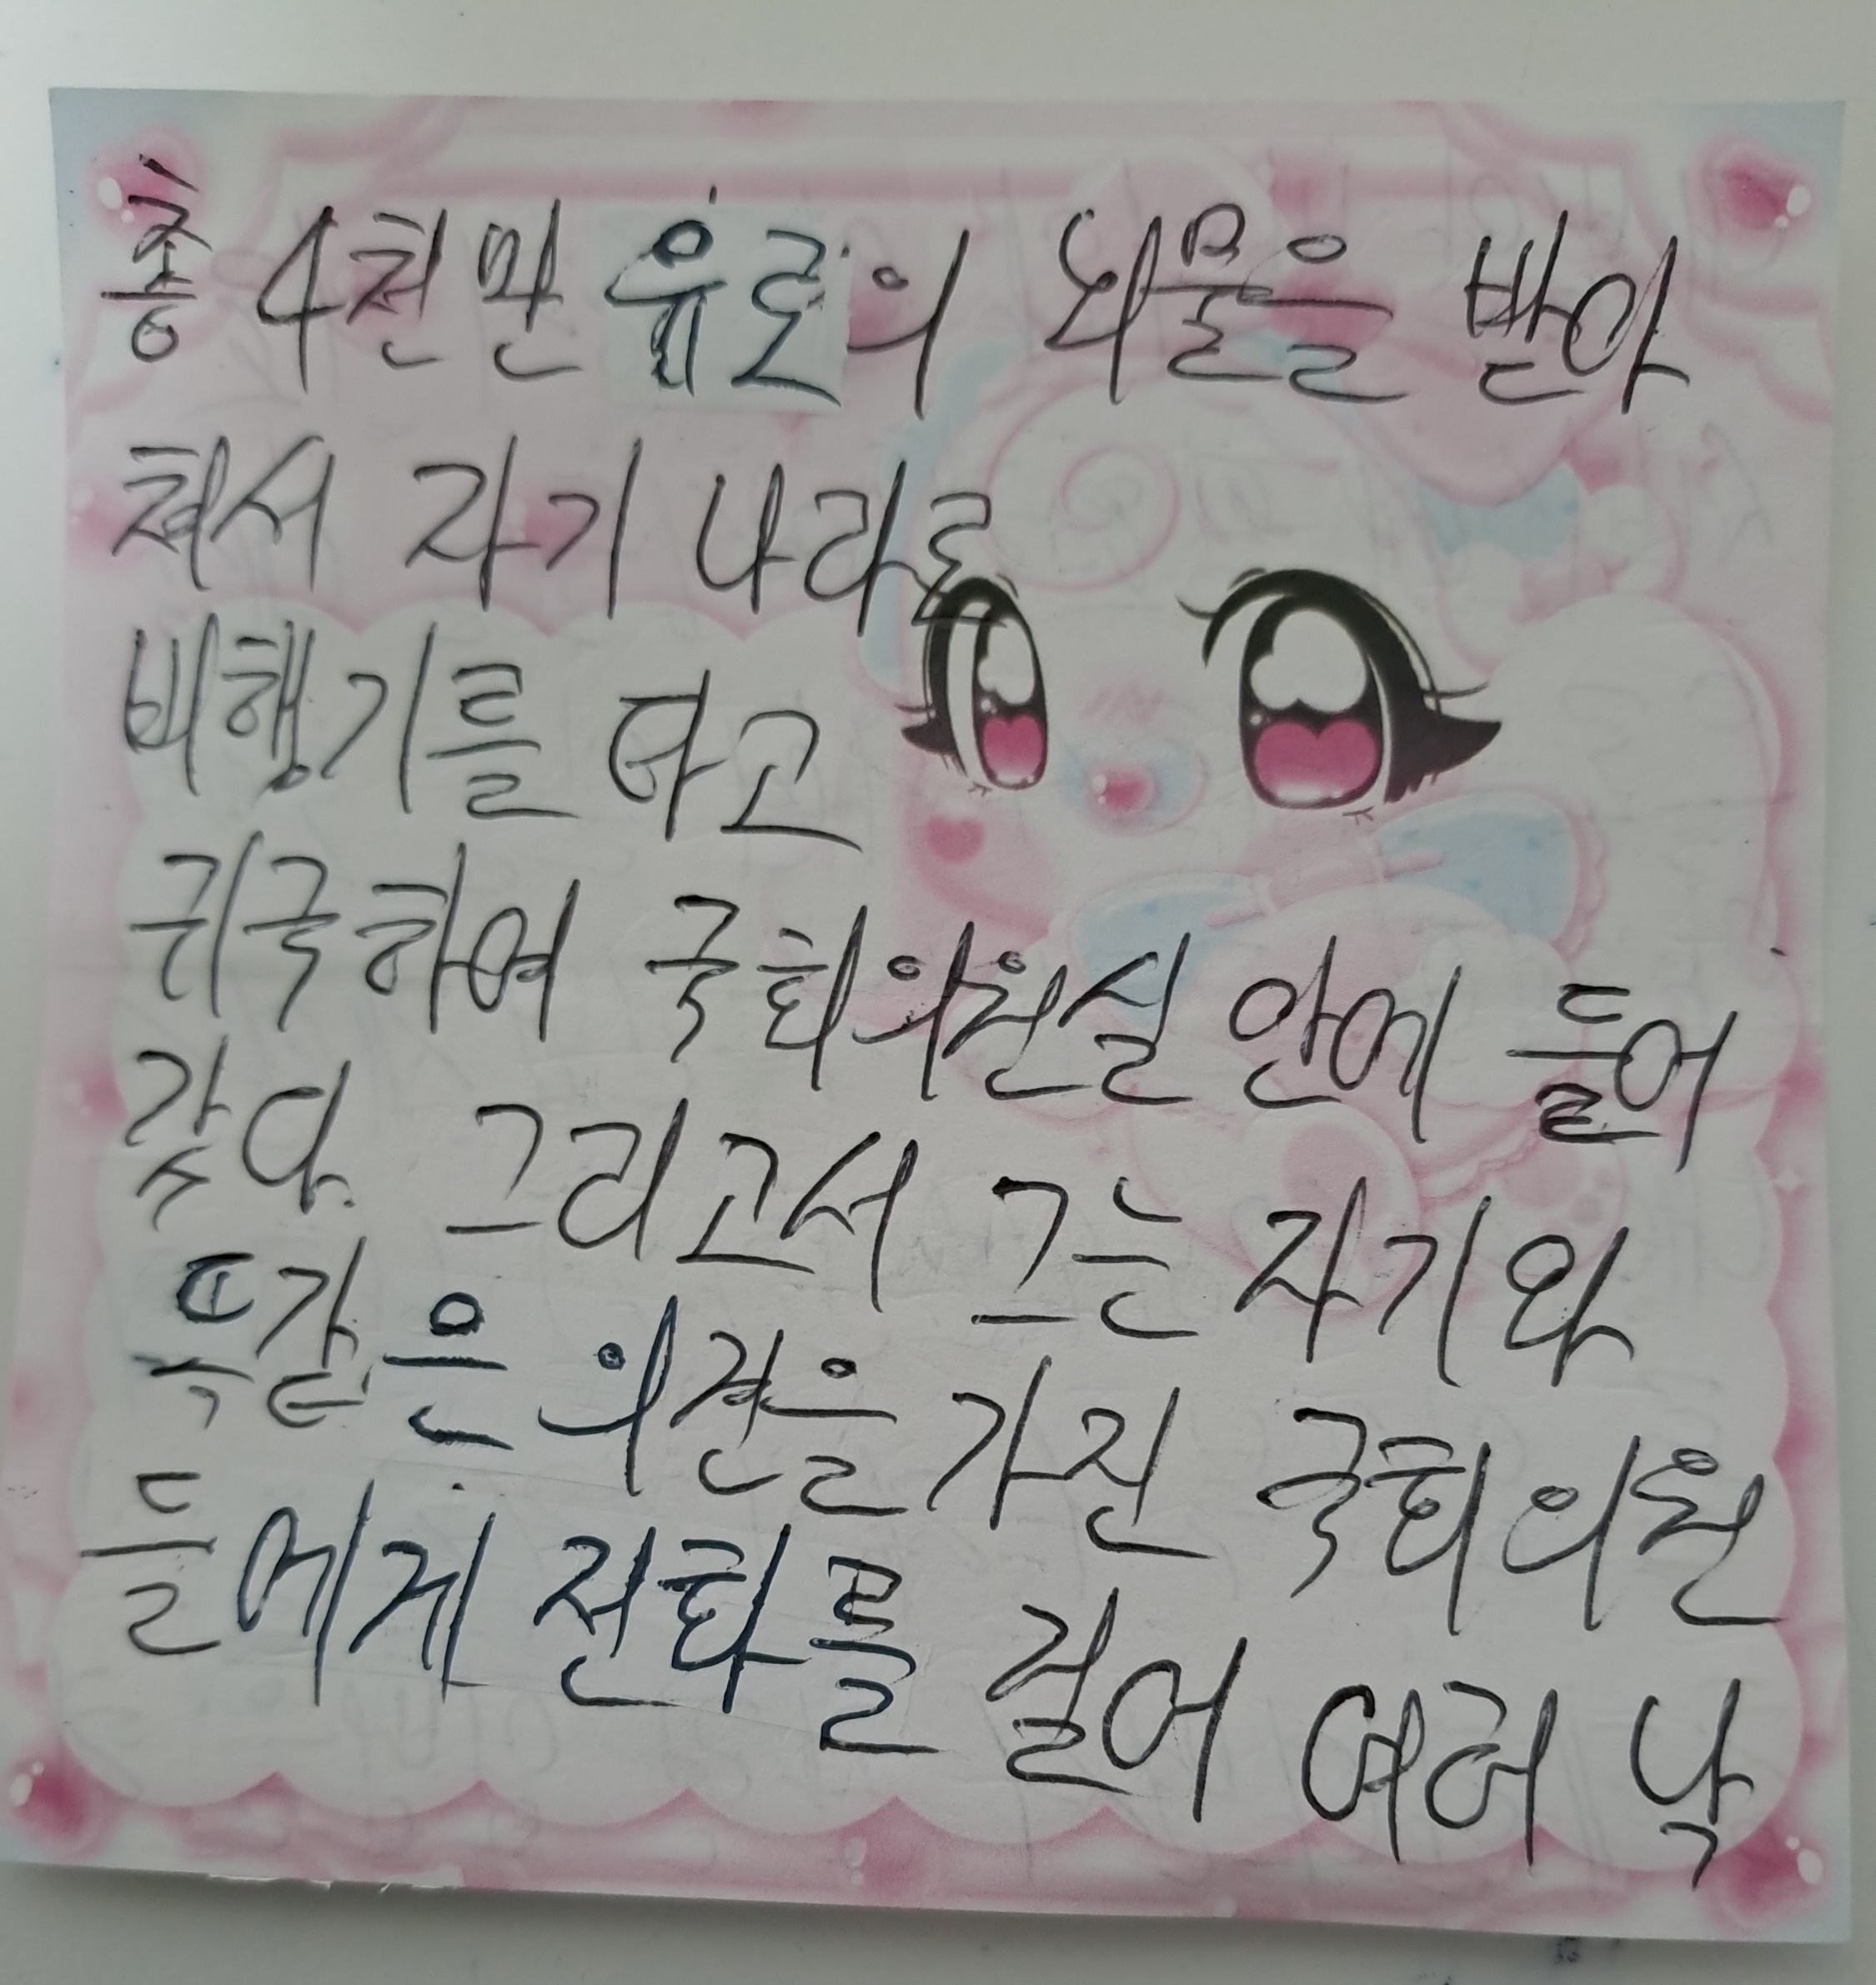 총 4천만 유로의 뇌물을 받아
쳐서 자기 나라로
비행기를 타고
귀국하여 국회의원실 안에 들어
갔다. 그리고서 그는 자기와
똑같은 의견을 가진 국회의원
들에게 전화를 걸어 여러 낙